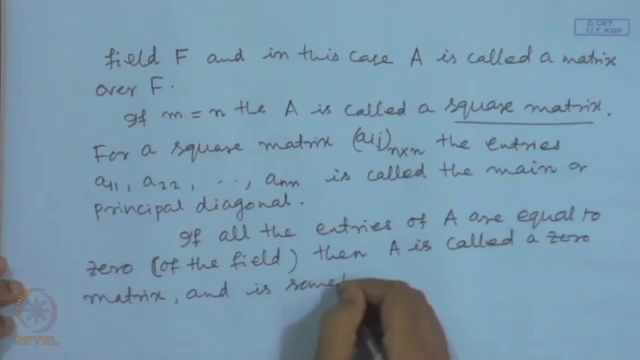 field F and in this case A is called a matrix
over F.
If m = n the A is called a square matrix.
For a square matrix (aij)n×n the entries
a11, a22, ..., ann is called the main or
principal diagonal.
If all the entries of A are equal to
zero (of the field) then A is called a zero
matrix, and is some
© CET
I.I.T. KGP
NPTEL